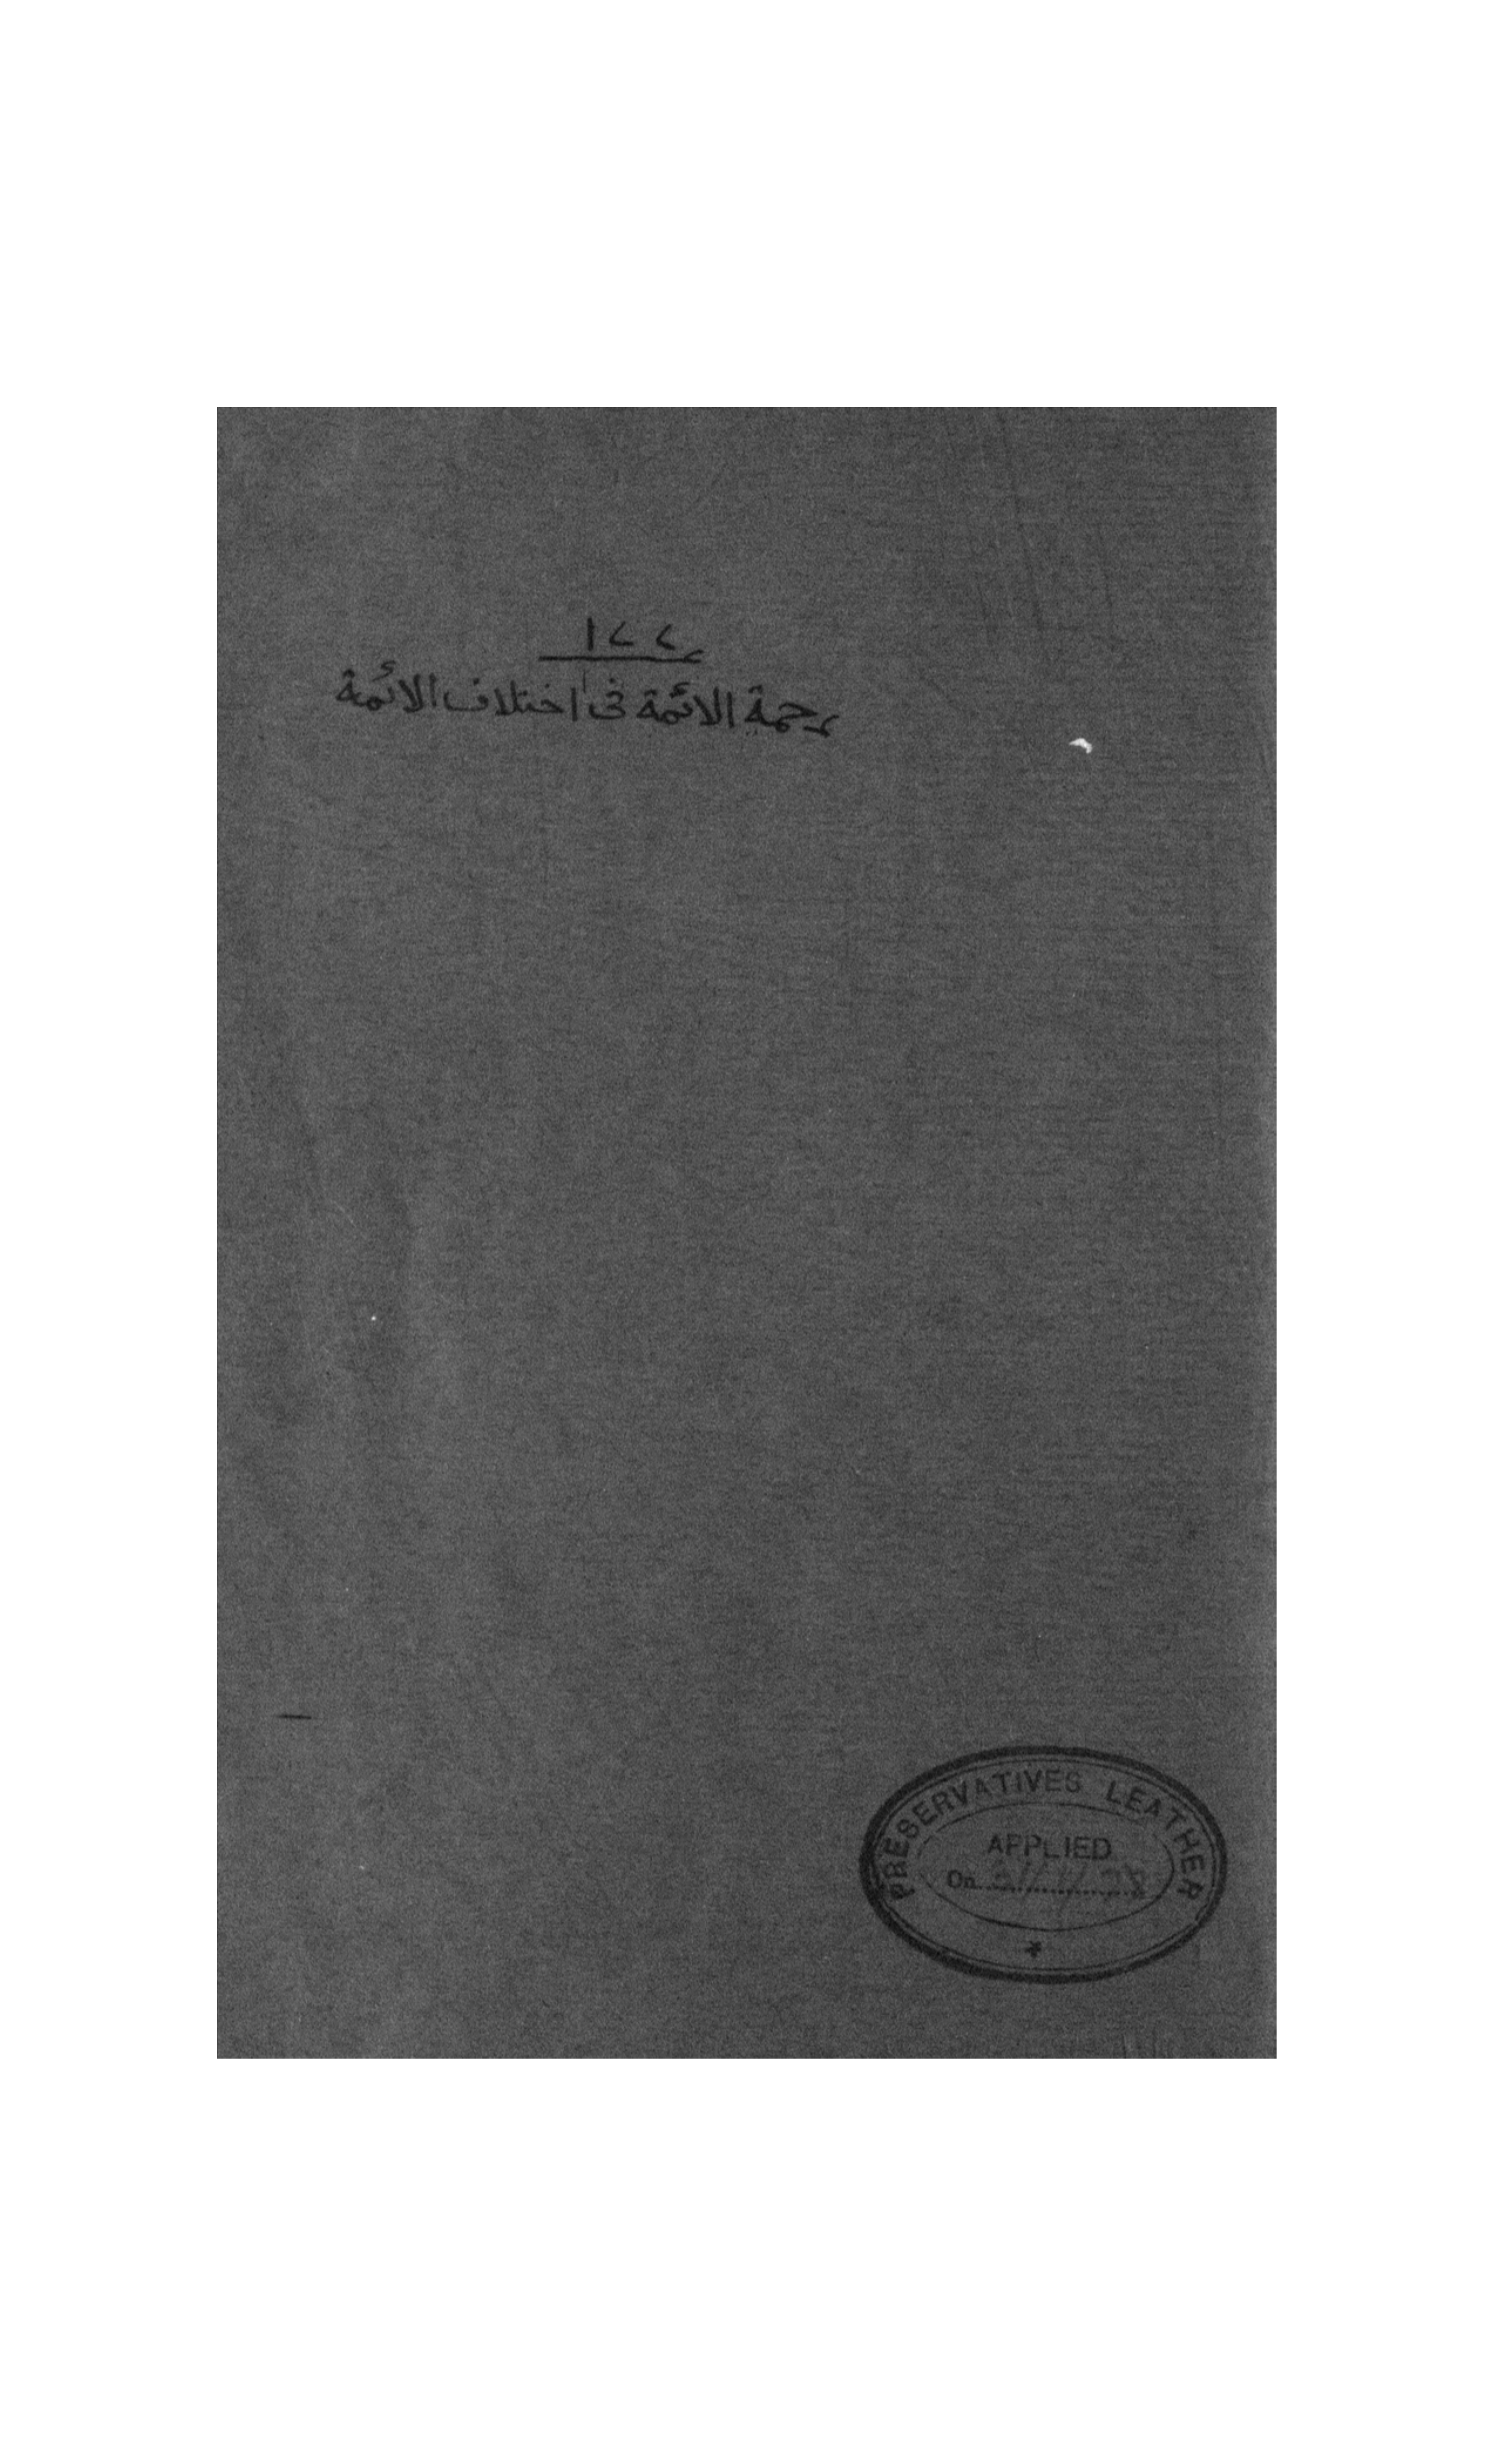 رحمة الائمة فى اختلاف الائمة
PRESERVATIVES LEATHER
APPLIED
On